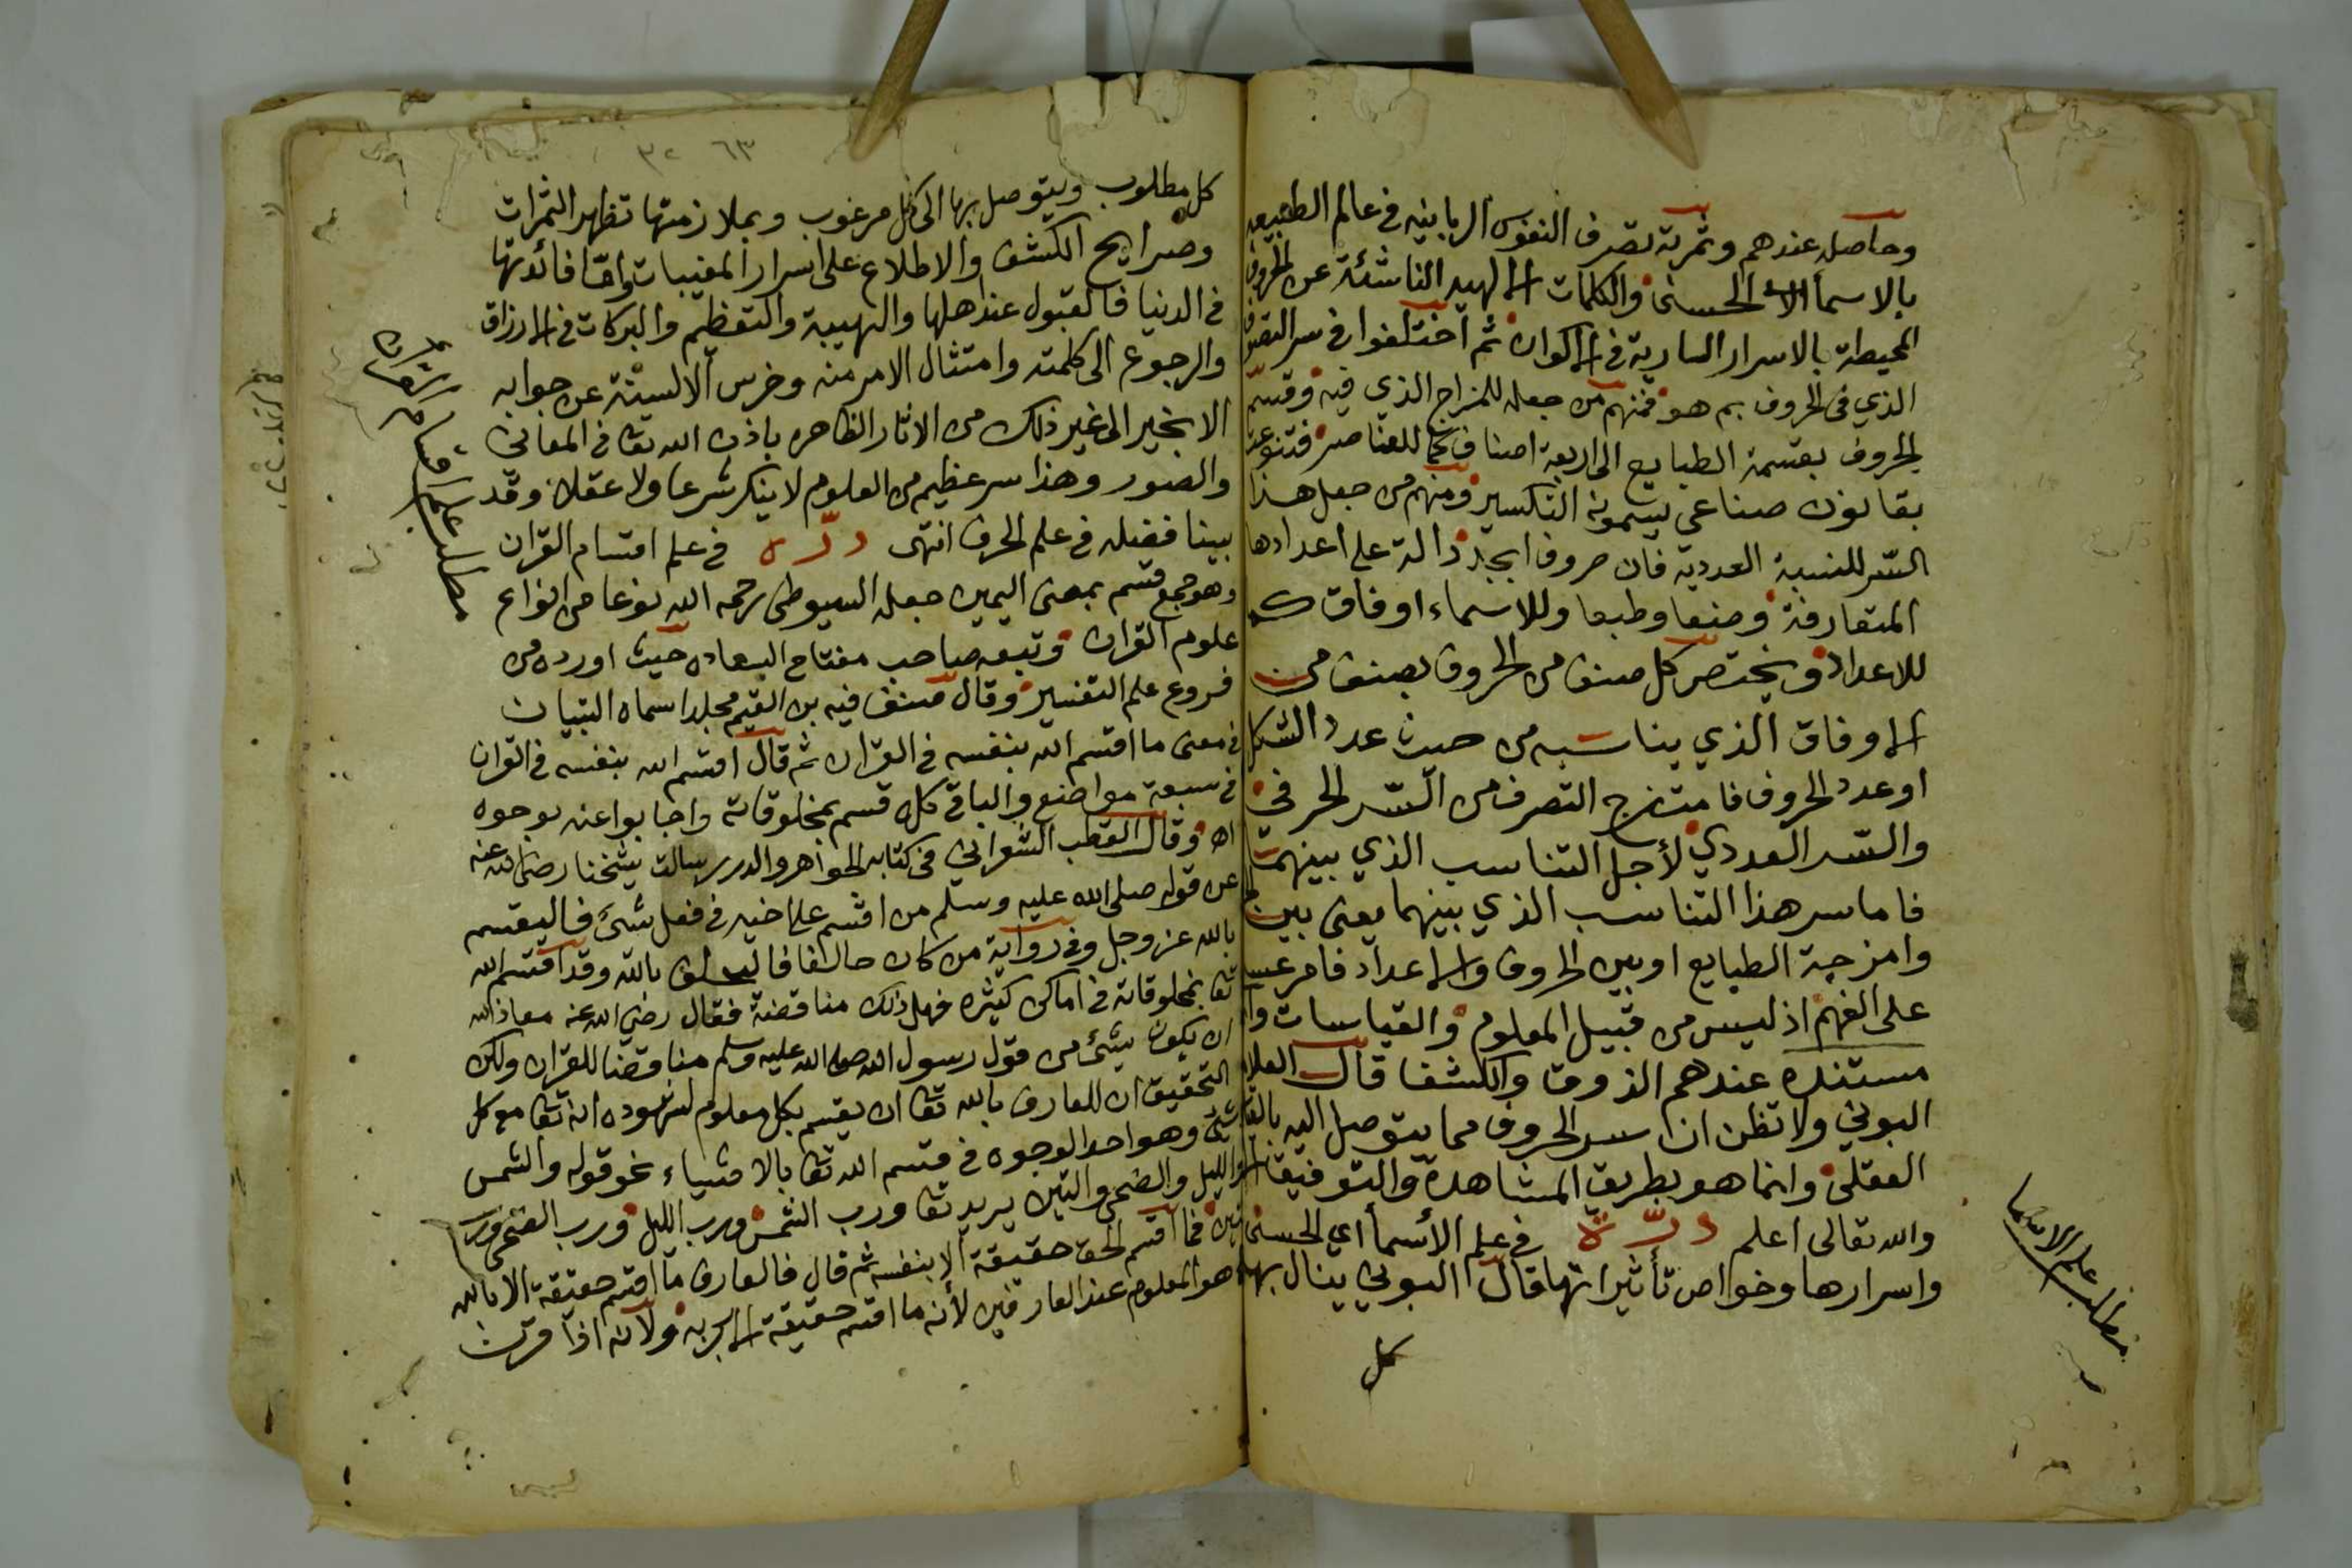 وحاصله عندهم وثمرته تصرف النفوس الربانيه في عالم الطبيعه
بالاسما الحسنى والكلمات الالهيه الناشئة عن الحروف
المحيطة بالاسرار السارية في الاكوان ثم اختلفوا في سر التصرف
الذي في الحروف بم هو فمنهم من جعله للمزاج الذي فيه وقسم
الحروف بقسمة الطبايع الى اربعة اصناف كما للعناصر فتنوعت
بقانون صناعي يسمونه التكسير ومنهم من جعل هذا
السّر للنسبة العددية فان حروف ابجد دالة على اعدادها
المتعارفة وضعا وطبعا وللاسماء اوفاق كما
للاعداد ويختص كل صنف من الحروف بصنف من
الاوفاق الذي يناسبه من حيث عدد الشكل
او عدد الحروف فامتزج التصرف من السّر الحرفي
والسّر العددي لأجل التناسب الذي بينهما
فاما سر هذا التناسب الذي بينهما يعني بين
وامزجة الطبايع او بين الحروف والاعداد فامر عسر
على الفهم اذ ليس من قبيل العلوم والقياسات وا
مستنده عندهم الذوق والكشف قال العلامه
البوني ولا تظن ان سر الحروف مما يتوصل اليه بالقياس
العقلي وانما هو بطريق المشاهدة والتوفيق
والله تعالى اعلم درّة في علم الأسما اي الحسنى
واسرارها وخواص تأثيراتها قال البوني ينال بها
كل
مطلب علم الاسما
٦٣ ٣٢
كل مطلوب ويتوصل بها الى كل مرغوب وبملازمتها تظهر الثمرات
وصرايح الكشف والاطلاع على اسرار المغيبات واما فائدتها
في الدنيا فالقبول عند اهلها والهيبة والتعظيم والبركات في الارزاق
والرجوع الى كلمته وامتثال الامر منه وخرس الالسنة عن جوابه
الا بخير الى غير ذلك من الاثار الظاهره باذن الله تعا في المعاني
والصور وهذا سر عظيم من العلوم لا ينكر شرعا ولا عقلا وقد
بينا فضله في علم الحرف انتهى درّه في علم اقسام القران
وهو جمع قسم بمعنى اليمين جعله السيوطي رحمه الله نوعا من انواع
علوم القران وتبعه صاحب مفتاح السعاده حيث اورده من
فروع علم التفسير وقال صنف فيه بن القيم مجلدا سماه التبيان
في معنى ما اقسم الله بنفسه في القران ثم قال اقسم الله بنفسه في القران
في سبعة مواضع والباقي كله قسم بمخلوقاته واجابوا عنه بوجوه
اه وقال القطب الشعراني في كتابه الجواهر والدرر سالت شيخنا رضي الله عنه
عن قوله صلى الله عليه وسلم من اقسم على اخيه في فعل شئ فاليقسم
بالله عز وجل وفي رواية من كان حالفا فاليحلف بالله وقد اقسم الله
تعا بمخلوقاته في اماكن كثيره فهل ذلك مناقضة فقال رضي الله عنه معاذ الله
ان يكون شئ من قول رسول الله صلى الله عليه وسلم مناقضا للقران ولكن
التحقيق ان للعارف بالله تعا ان يقسم بكل معلوم لشهوده انه تعا مع كل
شئ وهو احد الوجوه في قسم الله تعا بالاشياء نحو قوله والشمس
والليل والضحى والتين يريد تعا ورب الشمس ورب الليل ورب الضحى ورب
التين فما اقسم الحق حقيقة الا بنفسه ثم قال فالعارف ما اقسم حقيقة الا بالله
هو المعلوم عند العارفين لأنه ما اقسم حقيقة الا بربه ولانه اذا قرن
مطلب علم اقسام القران